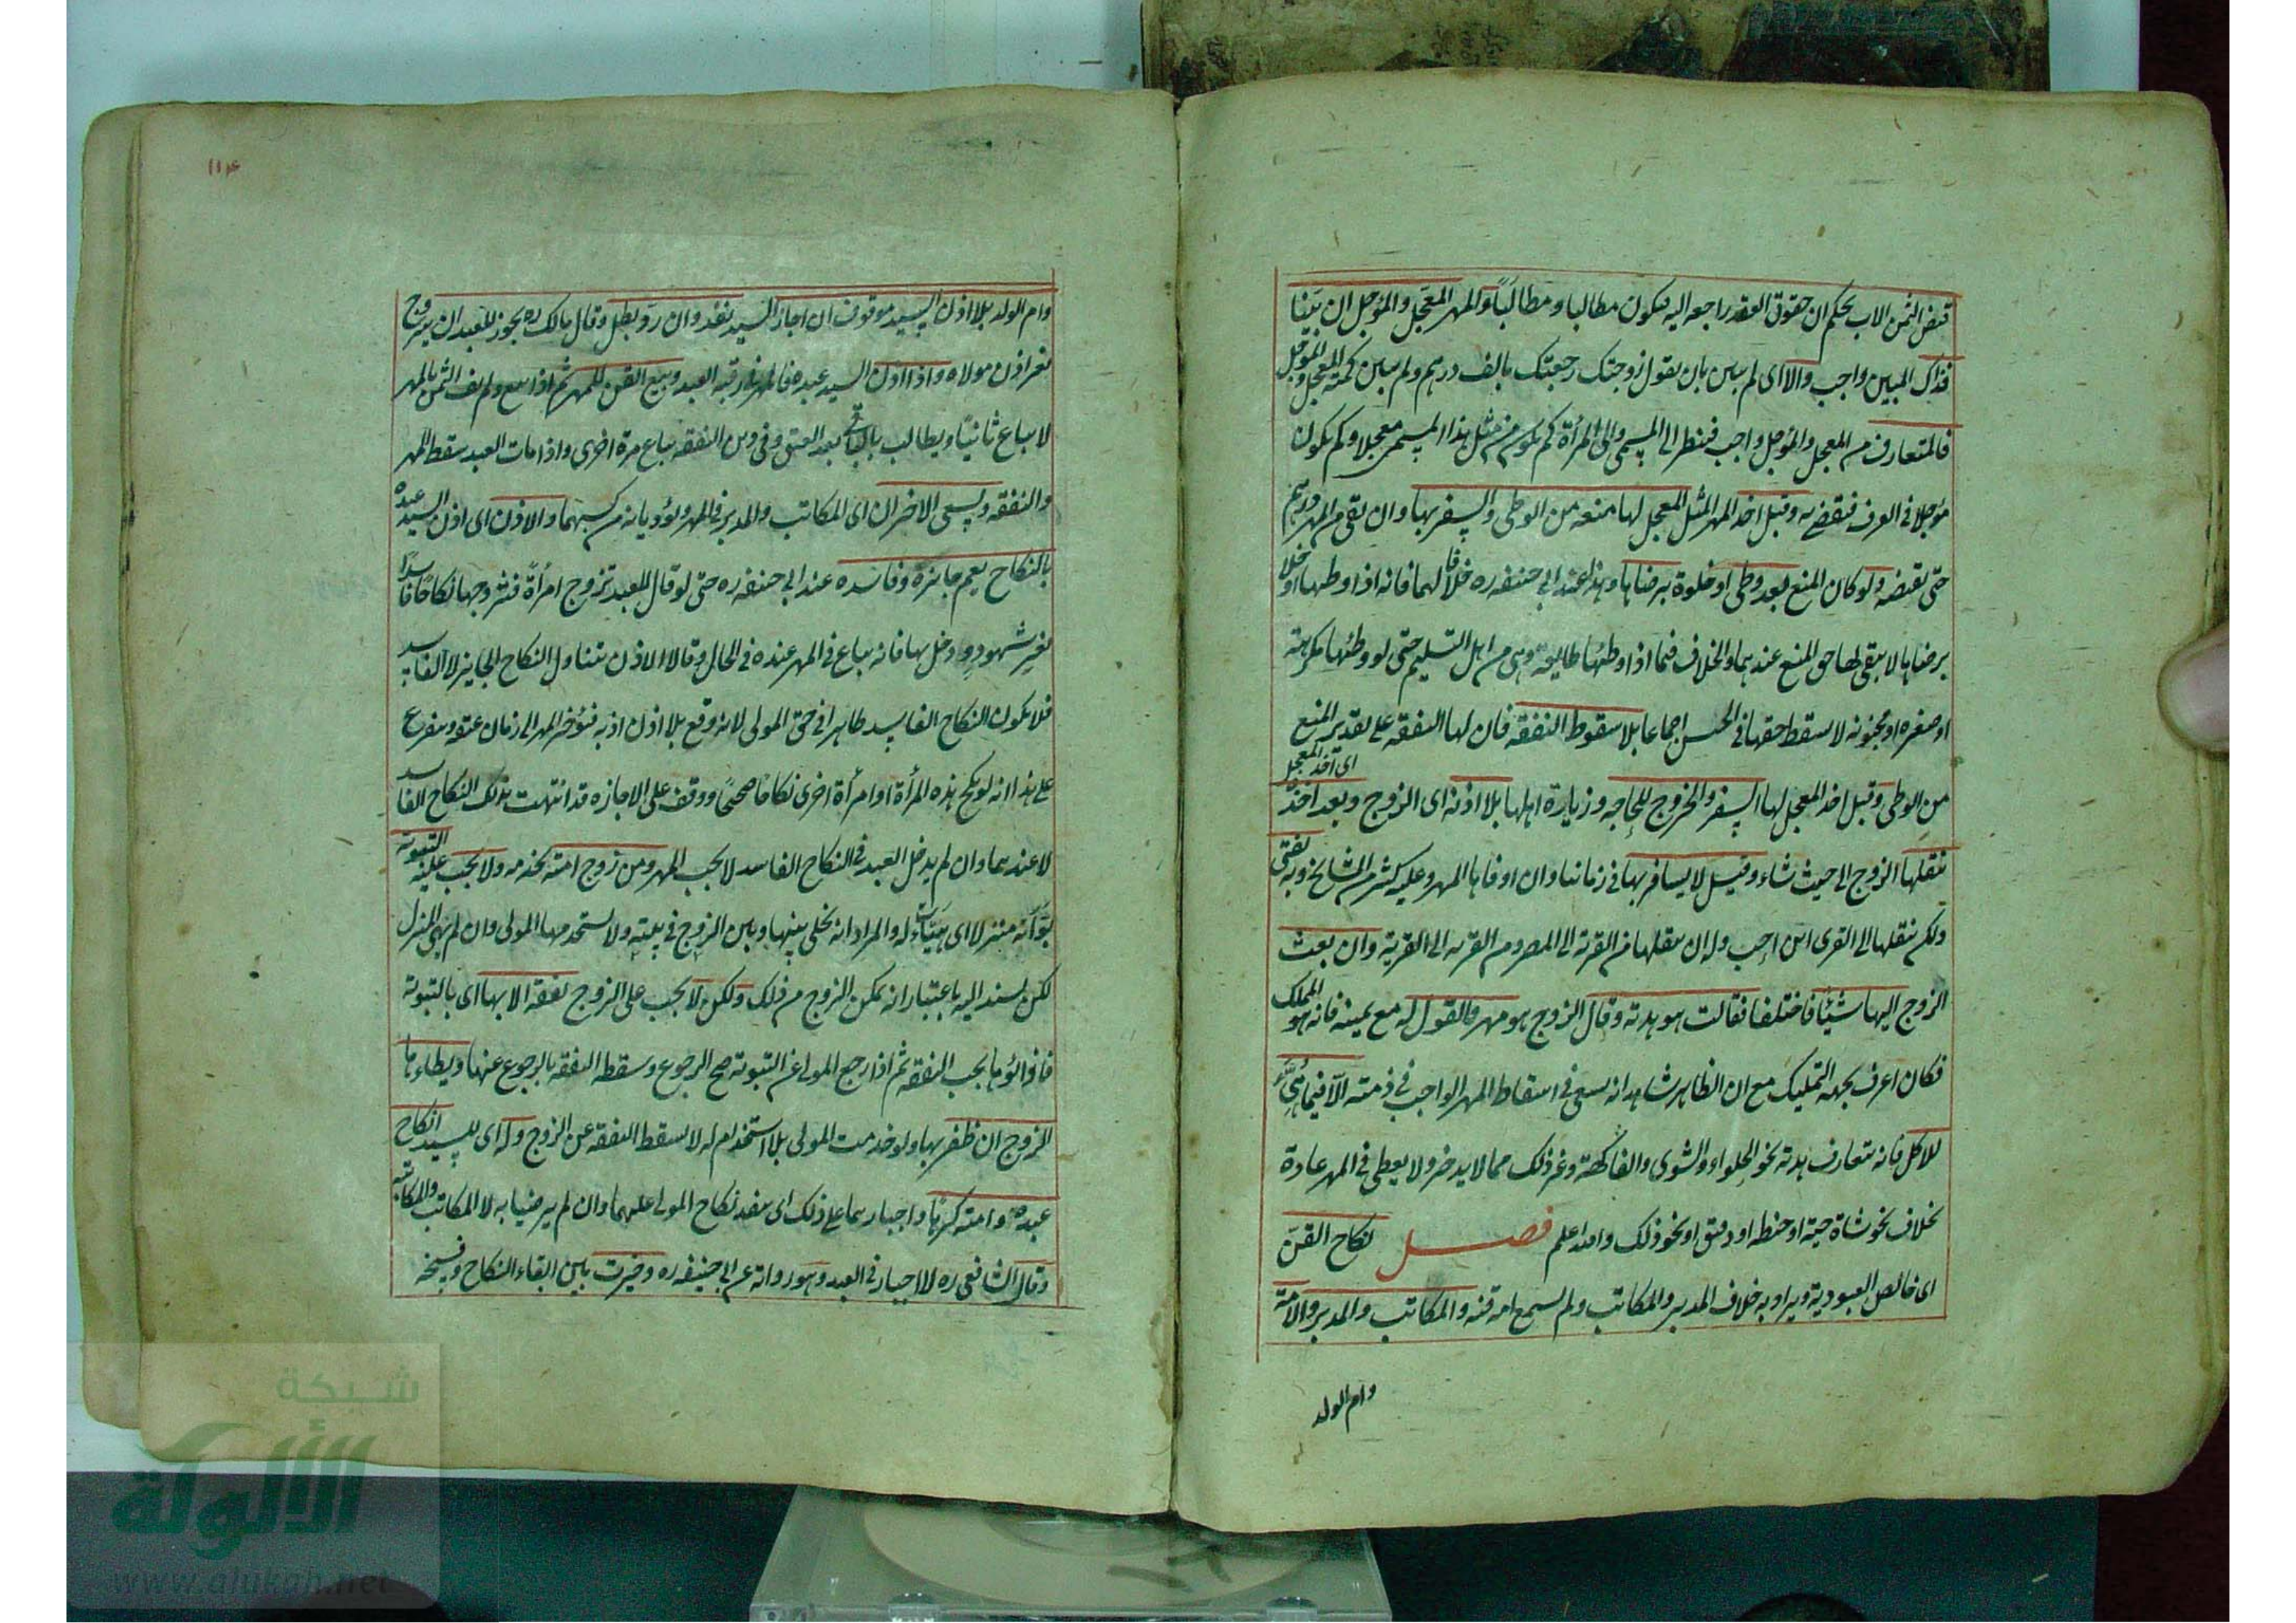 قبض الثمن الاب بحكم ان حقوق العقد راجعه اليه فيكون مطالبا ومطالَبًا والمهر المعجل والمؤجل ان بيّنا
فذاك المبين واجب والا اى لم يبين بان يقول زوجتك رجعتك بالف درهم ولم يبين كمية المعجل والمؤجل
فالمتعارف من المعجل والمؤجل واجب فينظر الى المسمى والى المرأة كم يكون من مثل هذا المسمى معجلا وكم يكون
مؤجلا فى العرف فيقضى به وقبل اخذ المهر المثل المعجل لها منعه من الوطى والسفر بها وان بقى من المهر درهم
حتى تقبضه ولو كان المنع بعد وطى او خلوة برضاها وهذا عند ابى حنيفه ره خلافا لهما فانه اذا وطئها او خلا
برضاها لا يبقى لها حق المنع عندهما والخلاف فيما اذا وطئها طايعة وهى من اهل التسليم حتى لو وطئها مكرهة
او صغيره او مجنونه لا يسقط حقها فى الحبس اجماعا بلا سقوط النفقه فان لها النفقه على تقدير المنع
من الوطى وقبل اخذ المعجل لها السفر والخروج للحاجه وزيارة اهلها بلا اذنه اى الزوج وبعد اخذه
اى اخذ المعجل
ينقلها الزوج الى حيث شاء وقيل لا يسافر بها فى زماننا وان اوفاها المهر وعليه كثير من المشايخ وبه يفتى
ولكن ينقلها الى القرى اين احب وله ان ينقلها من القرية الى المصر ومن القريه الى القرية وان بعث
الزوج اليها شيئًا فاختلفا فقالت هو هدية وقال الزوج هو مهر فالقول له مع يمينه فانه هو المملك
فكان اعرف بجهه التمليك مع ان الظاهر شاهد انه يسعى فى اسقاط المهر الواجب فى ذمته الا فيما هيّئ
للاكل فانه يتعارف هدية نحو الحلواء والشوى والفاكهة وغير ذلك مما لا يدخر ولا يعطى فى المهر عادة
بخلاف نحو شاة حية او حنطه او دقيق او نحو ذلك والله اعلم فصل نكاح القنّ
اى خالص العبودية ويراد به خلاف المدبر والمكاتب ولم يسمع امه قنه والمكاتب والمدبر والامة
وام الولد
١١٤
وام الولد بلا اذن السيد موقوف ان اجاز السيد نفذ وان رد بطل وقال مالك ره يجوز للعبد ان يتزوج
بغير اذن مولاه واذا اذن السيد عبده فالمهر فى رقبة العبد وبيع القن للمهر ثم اذا بيع ولم يف الثمن بالمهر
لا يباع ثانيًا ويطالب بالباقى بعد العتق وفى دين النفقه يباع مرة اخرى واذا مات العبد سقط المهر
والنفقه ويسعى الاخران اى المكاتب والمدبر فى المهر ويؤديانه من كسبهما والاذن اى اذن السيد عبده
بالنكاح يعم جايزه وفاسده عند ابى حنيفه ره حتى لو قال للعبد تزوج امرأة فتزوجها نكاحًا فاسدًا
بغير شهود ودخل بها فانه يباع فى المهر عنده فى الحال وقالا الاذن يتناول النكاح الجايز لا الفاسد
فلا يكون النكاح الفاسد ظاهرا فى حق المولى لانه وقع بلا اذن اذ به فيؤخر المهر الى زمان عتقه ويتفرع
على هذا انه لو نكح هذه المرأة او امرأة اخرى نكاحًا صحيحًا ووقف على الاجازه قد انتهت بذلك النكاح الفاسد
لا عندهما وان لم يدخل العبد فى النكاح الفاسد لا يجب المهر ومن زوج امته تخدمه ولا يجب عليه التبوئة
بوّأته منزلا اى هيّأت له والمراد انه يخلى بينها وبين الزوج فى بيته ولا يستخدمها المولى وان لم يهى المنزل
لكن يسند اليه باعتبار انه يمكن الزوج من ذلك ولكن لا يجب على الزوج نفقة الا بها اى بالتبوئة
فاذا بوّأها يجب النفقه ثم اذا رجع المولى عن التبوئة صح الرجوع وسقطه النفقه بالرجوع عنها ويطاءها
الزوج ان ظفر بها ولو خدمت المولى بلا استخدام له لا يسقط النفقه عن الزوج وله اى للسيد انكاح
عبده وامته كرهًا واجبارهما على ذلك اى ينفذ نكاح المولى عليهما وان لم يرضيا به لا المكاتب والمكاتبة
وقال الشافعى ره لا اجبار فى العبد وهو رواية عن ابى حنيفه ره وخيرت بين ابقاء النكاح وفسخه
شبكة
الألوكة
www.alukah.net